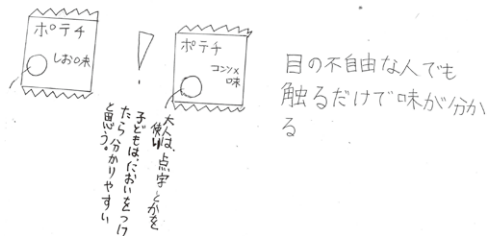 ポテチ
しお味
!
ポテチ
コンソメ
味
大人は、点字とかを
使い
子どもは、においをつけ
たら分かりやすい
と思う。
目の不自由な人でも
触るだけで味が分か
る